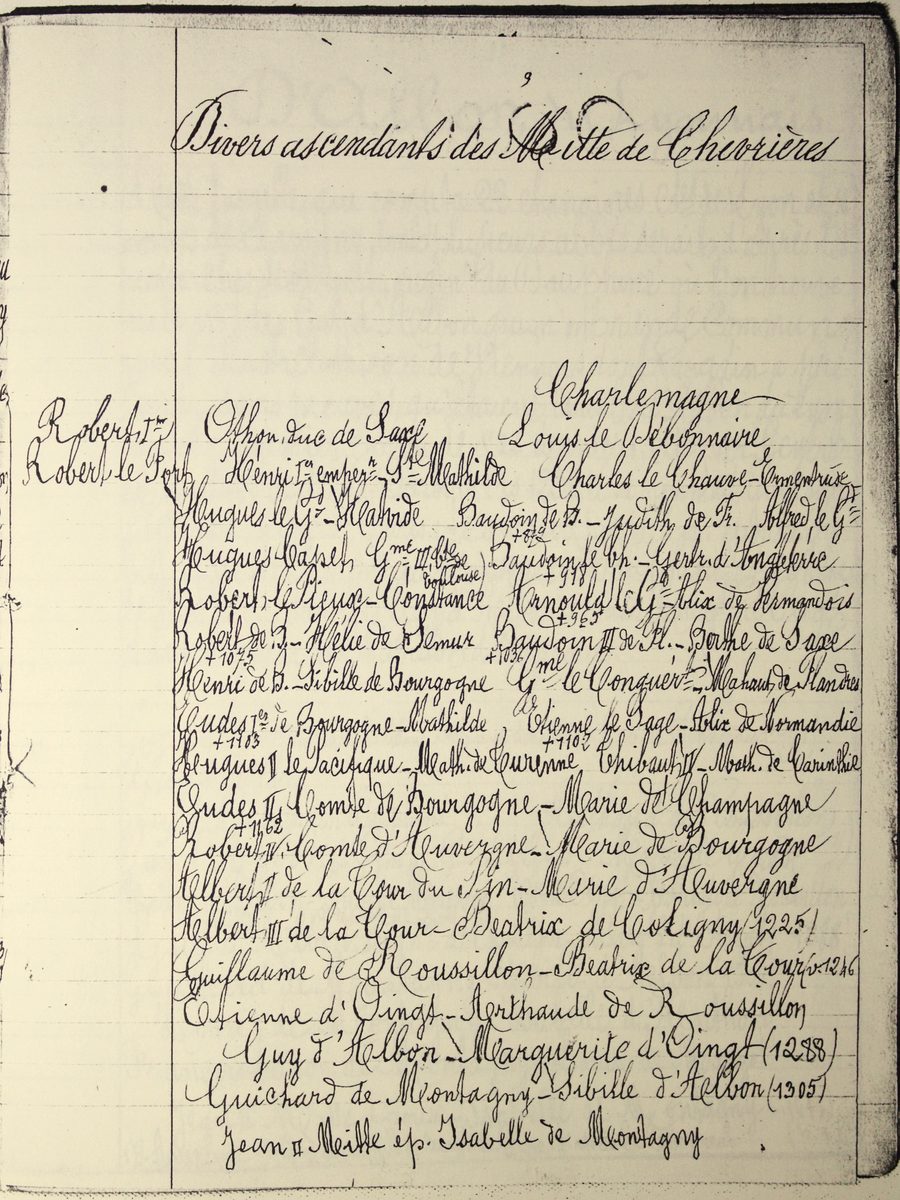 9
Divers ascendants des Mitte de Chevrières
Charlemagne
Robert Ier Othon, duc de Saxe Louis le Débonnaire
Robert le Fort Henri Ier emperr - Ste Mathilde Charles le Chauve - Ermentrude
Hugues le Gd - Hatvide Baudoin de B. - Judith de Fr. Alfred le Gd
+879
Hugues Capet, Gme III, Cte de Toulouse) Baudoin le Ch. - Gertr. d'Angleterre
+918
Robert le Pieux - Constance Arnould le Gd - Alix de Vermandois
+965
Robert de B. - Hélie de Semur Baudoin III de Fl. - Berthe de Saxe
+1075 +1036
Henri de B. - Sibille de Bourgogne Gme le Conquért - Mahaut de Flandres
Eudes Ier de Bourgogne - Mathilde Etienne le Sage - Alix de Normandie
+1103 +1102
Hugues II le Pacifique - Math. de Turenne Thibaut IV - Math. de Carinthie
Eudes II, Comte de Bourgogne - Marie de Champagne
+1162
Robert IV, Comte d'Auvergne - Marie de Bourgogne
Albert II de la Tour du Pin - Marie d'Auvergne
Albert III de la Tour - Béatrix de Coligny (1225)
Guillaume de Roussillon - Béatrix de la Tour (v. 1246
Etienne d'Oingt - Arthaude de Roussillon
Guy d'Albon - Marguerite d'Oingt (1288)
Guichard de Montagny - Sibille d'Albon (1305)
Jean II Mitte ép. Isabelle de Montagny